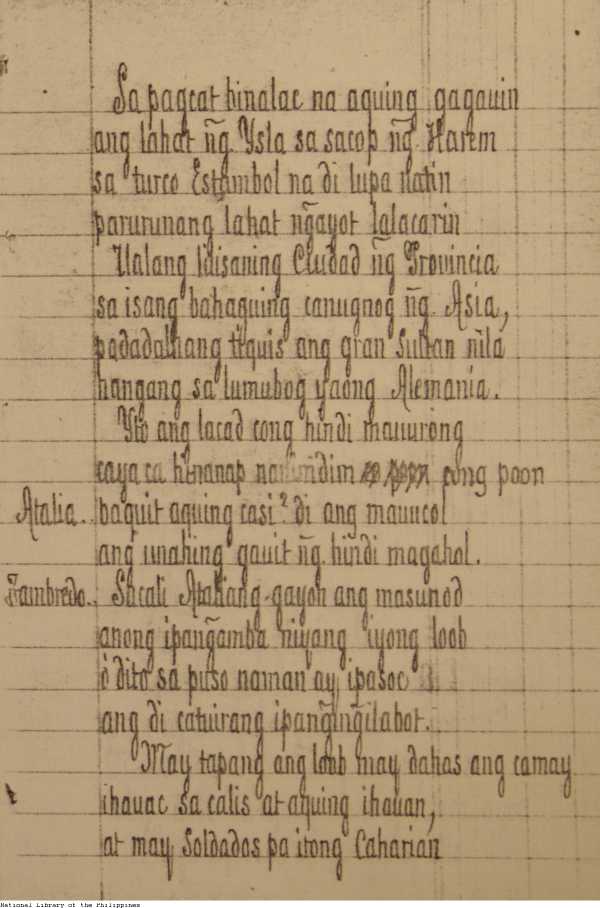 Sa pagcat binalac na aquing gagauin
ang lahat ng̃ Ysla sa sacop ng̃ Harem
sa turco Estambol na di lupa natin
parurunang lahat ng̃ayot lalacarin
Ualang Idisaning Ciudad ng̃ Provincia
sa isang bahaguing canugnog ng̃ Asia,
padadalhang tiquis ang gran Sultan nila
hangang sa lumubog yaong Alemania.
Yto ang lacad cong hindi mauurong
caya ca hinanap cong poon
Atalia.. baquit aquing casi? di ang mauucol
ang unahing gauit ng̃ hindi magahol.
Fambredo.. Sacali Ataliang gayon ang masunod
anong ipang̃amba niyang iyong loob
ò dito sa puso naman ay ipasoc
ang di catuirang ipang̃ing̃ilabot.
May tapang ang loob may dahas ang camay
ihauac sa calis at aquing ihauan,
at may Soldados pa itong Caharian
National Library of the Philippines